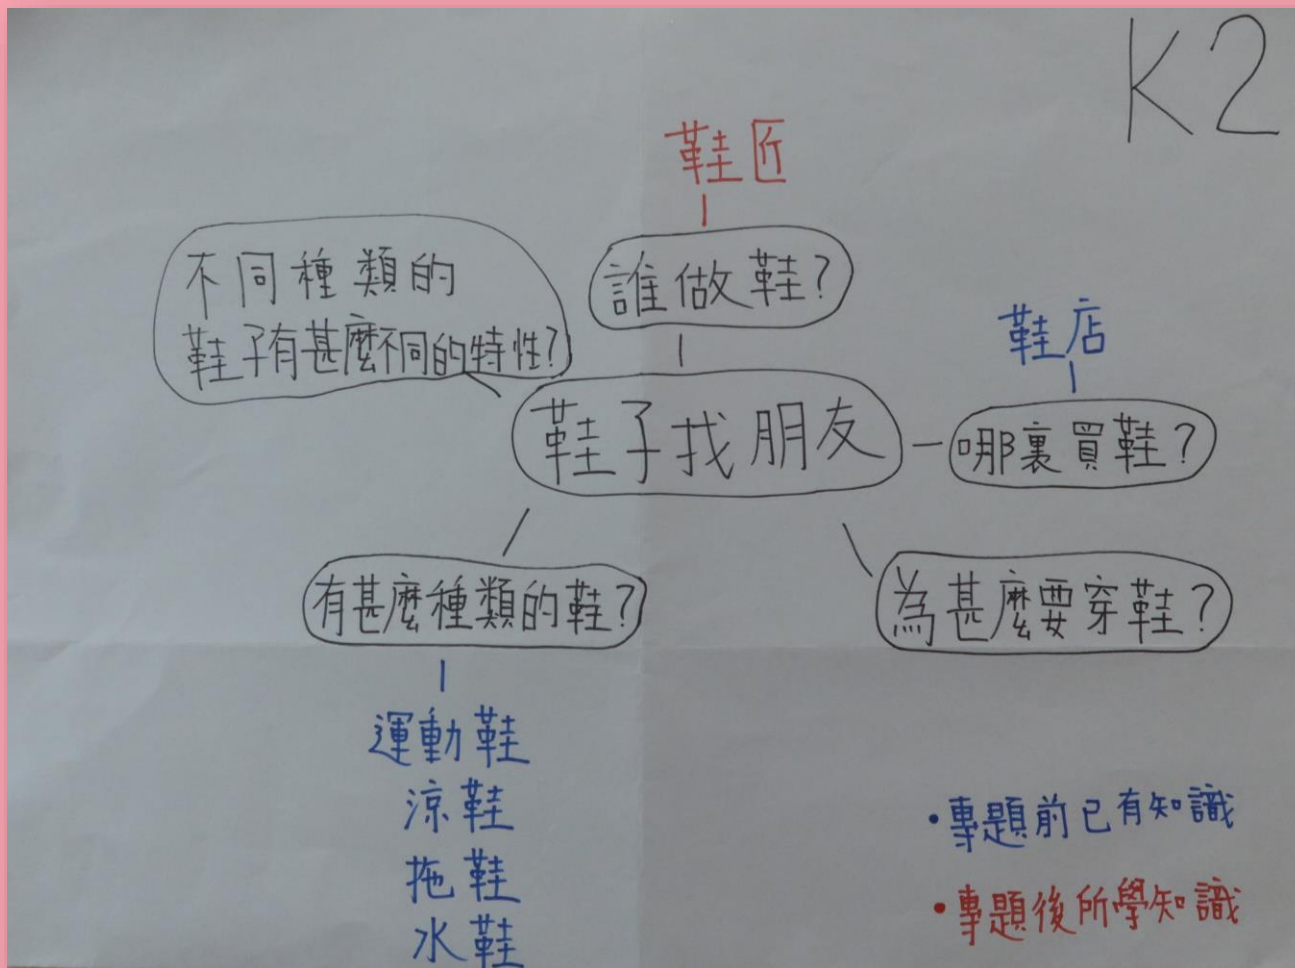 K2
鞋匠
誰做鞋?
不同種類的
鞋子有甚麼不同的特性?
鞋店
鞋子找朋友
哪裏買鞋?
有甚麼種類的鞋?
為甚麼要穿鞋?
運動鞋
涼鞋
拖鞋
水鞋
·專題前已有知識
·專題後所學知識